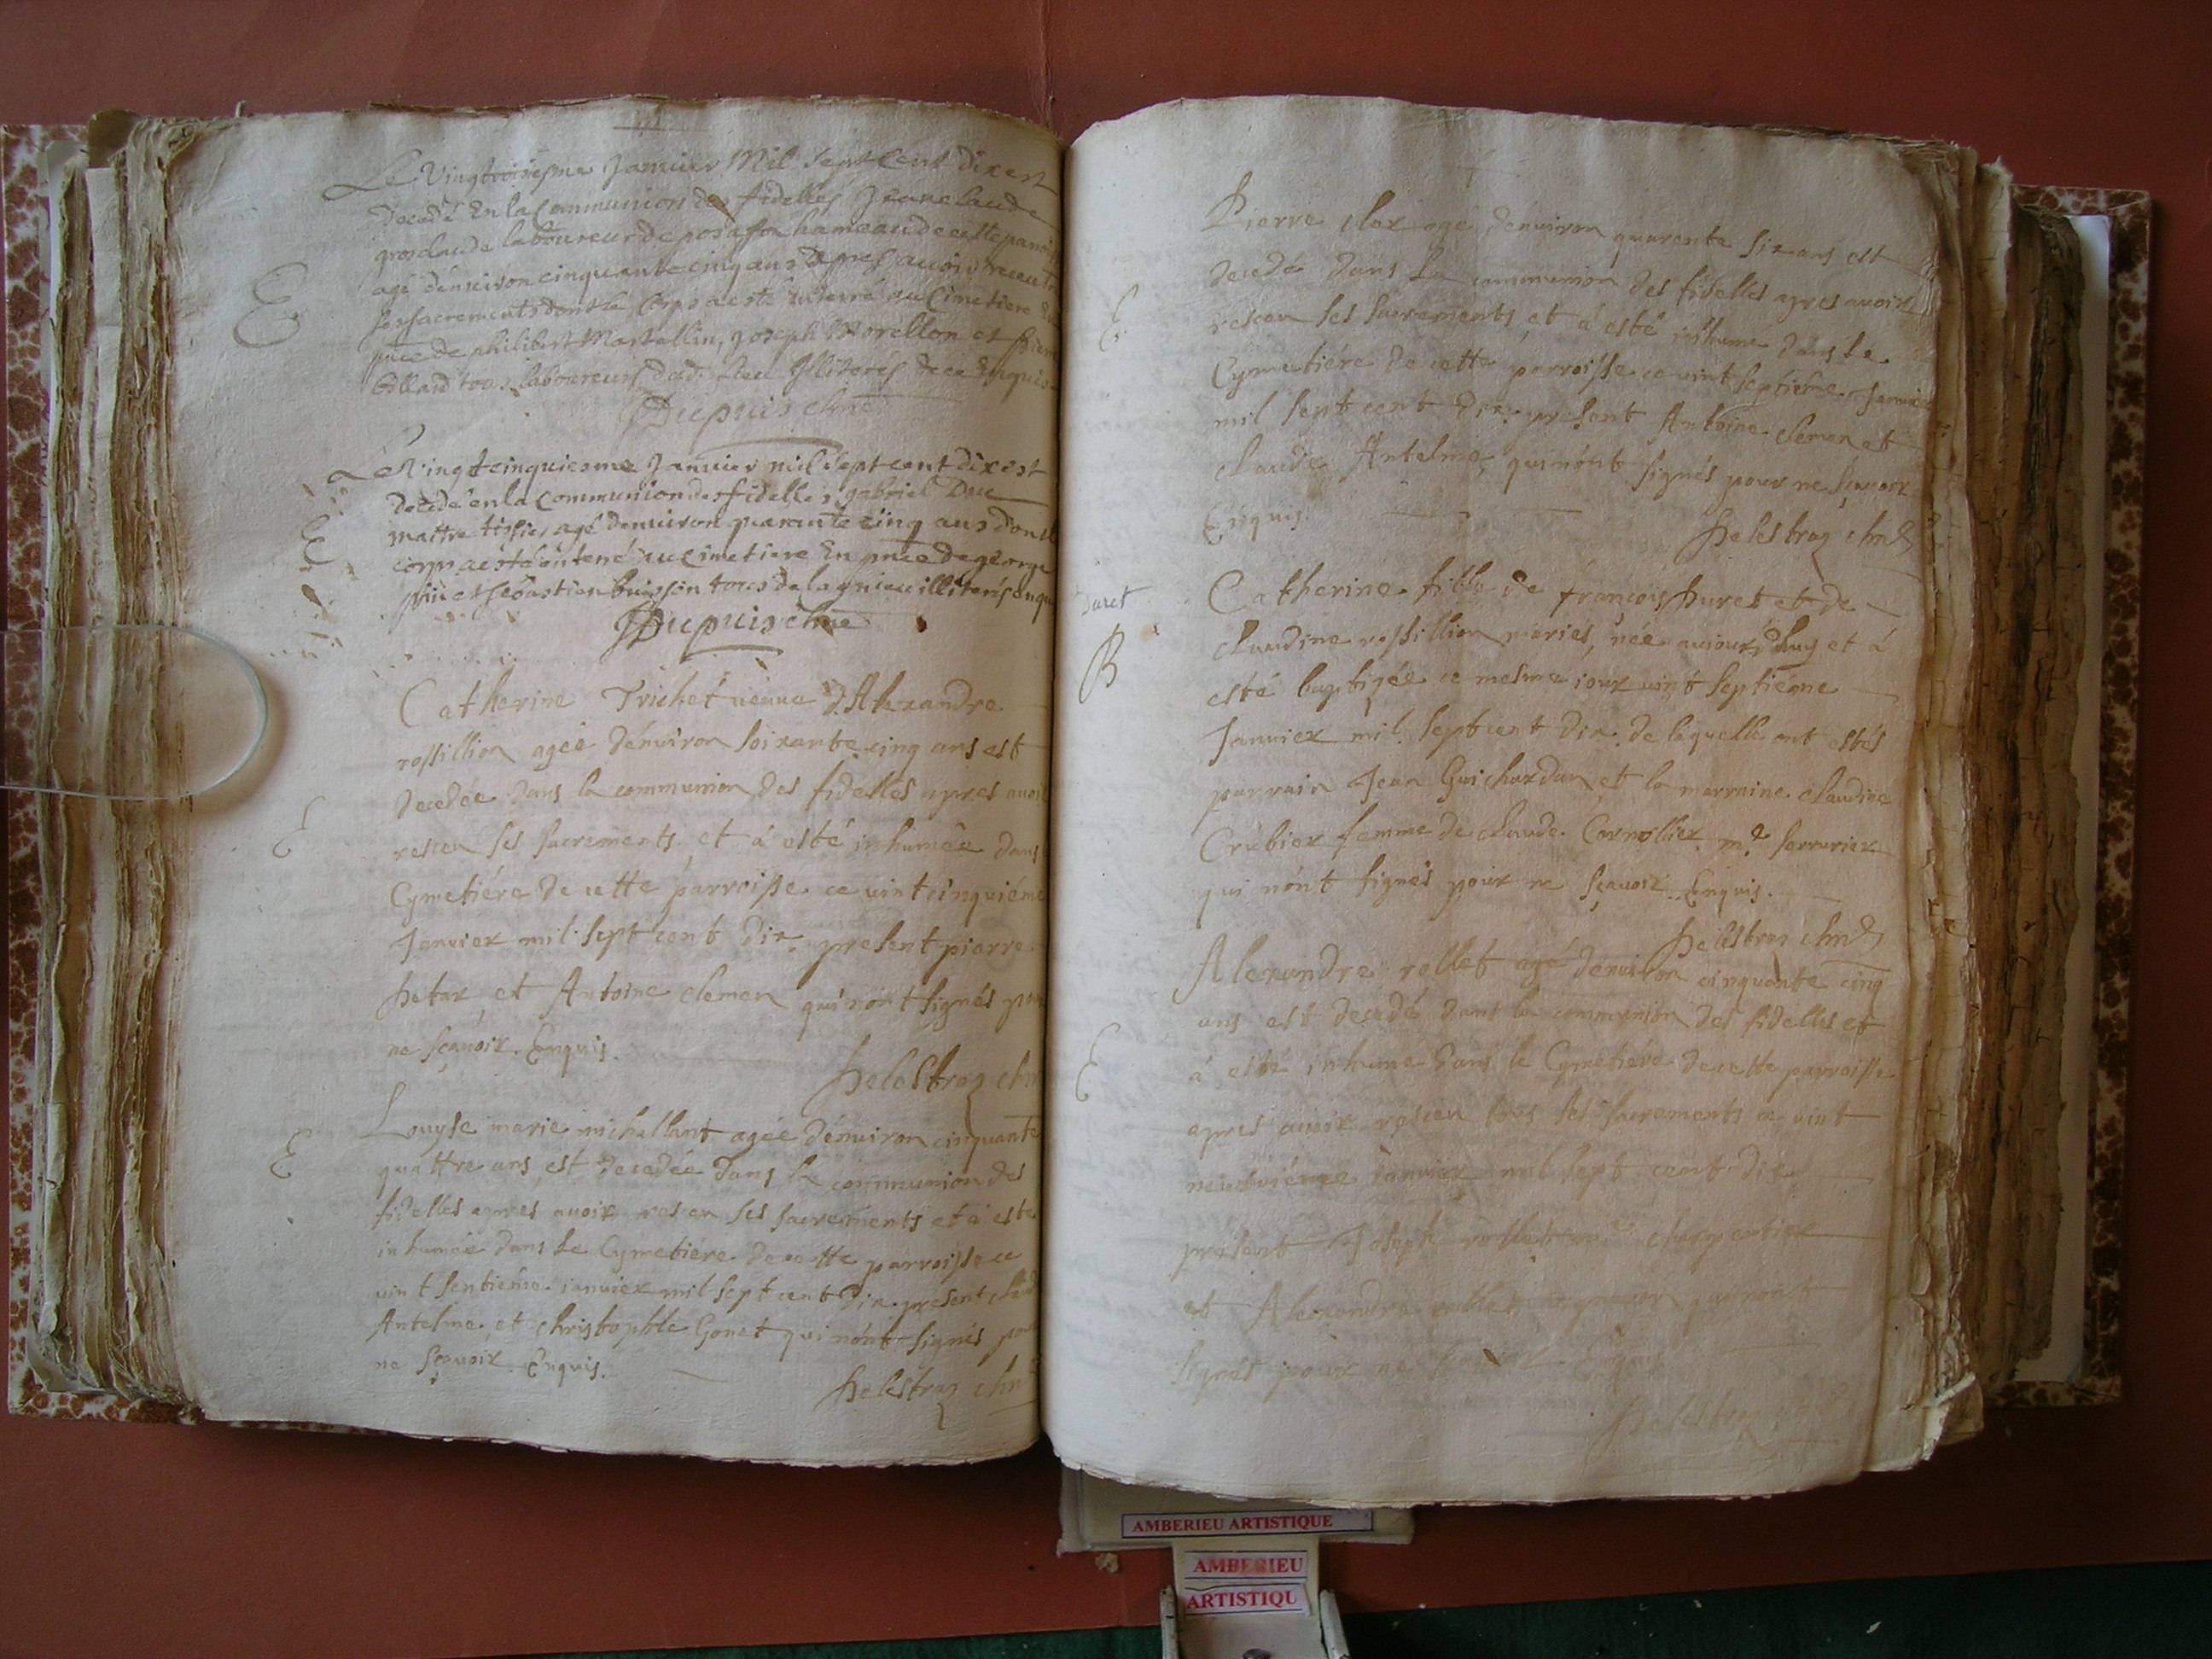 Le Vingtroisiesme Janvier Mil Sept Cent Dix est
Decedé En la Communion des fidelles Jeane laude
grosclaude laboureur de posafon hameau de cette parroi
agé d'enuiron cinquante cinq ans apres auoir receu
ses sacrements dont le corps a esté enterré au Cimetiere En
pnce de philibert Martallin, Joseph Morellon et
Collard tous laboureurs dud. lieu Illiterés de ce Enquis
Dupuis chne
E
Le Vingt cinquiesme Janvier mil sept cent dix est
decedé en la Communion des fidelles gabriel Duc
maitre tissier agé denuiron quarante cinq ans dont
corps a esté enterré au Cimetiere En pnce de george
et sebastien buisson tous de lagnieu illiterés enqu
Dupuis chne
E
Catherine Trichet ueuue d'Alexandre
rossillion agée d'enuiron soixante cinq ans est
decedée dans la communion des fidelles apres auoir
resceu ses sacrements et a esté inhumée dans
Cymetiére de cette parroisse ce vint cinquiéme
Januier mil sept cent dix. present pierre
hetax et Antoine clemen qui n'ont signés pour
ne sçauoir. Enquis.
helestraz chn
E
Louyse marie michallant agée d'enuiron cinquante
quattre ans est decedée dans la communion des
fidelles apres auoir resceu ses sacrements et a esté
inhumée dans le Cymetiére de cette parroisse ce
vint septiéme januier mil sept cent dix. present claud
Antelme et christophle Gonet qui n'ont signés pour
ne sçauoir Enquis.
helestraz chn
E
Pierre clox agé d'enuiron quarente six ans est
decedé dans la communion des fidelles apres auoir
resceu ses sacrements et a esté inhumé dans le
Cymetiére de cette parroisse ce vint septiéme Januier
mil sept cent dix. present Antoine clemen et
claude Antelme, qui n'ont signés pour ne sçauoir
Enquis.
helestraz chne
E
Catherine fille de françois huret et de
claudine rossillion mariés, née aujourd'huy et á
esté baptizée ce mesme iour vint septiéme
Januier mil sept cent dix. de laquelle ont estés
parrain Jean Guichardan et la marraine claudine
Crubier femme de claude Cornollier me serrurier
qui n'ont signés pour ne sçauoir Enquis.
helestraz chne
B
Alexandre rollet agé denuiron cinquante cinq
ans est decedé dans la communion des fidelles et
á esté inhumé dans le Cymetiére de cette parroisse
apres auoir resceu tous ses sacrements ce vint
neufuiéme januier mil sept cent dix
present Joseph rollet me charpentier
et Alexandre rollet qui n'ont
signés pour ne sçauoir Enquis
helestraz chne
E
AMBERIEU ARTISTIQUE
AMBERIEU
ARTISTIQU